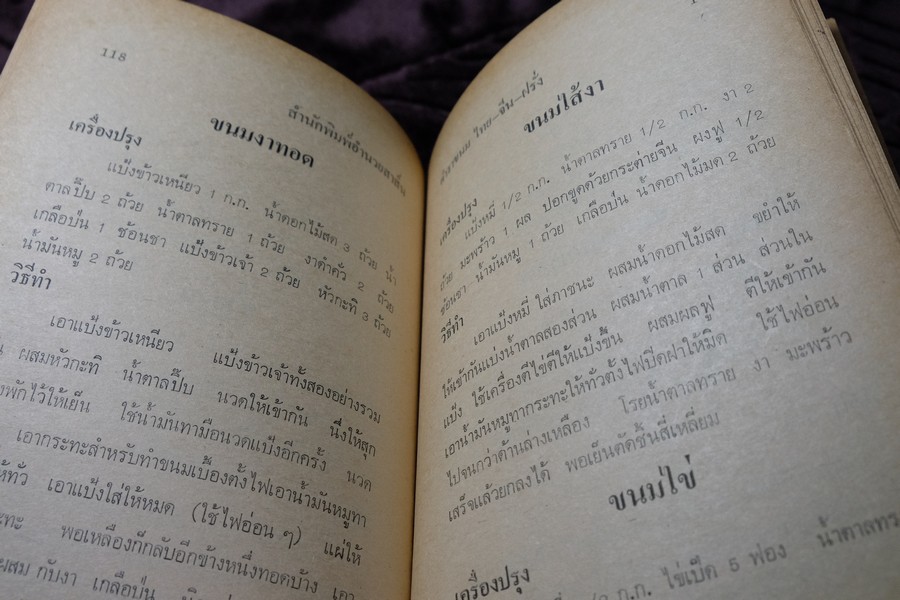 118
สำนักพิมพ์อำนวยสาส์น
ขนมงาทอด
เครื่องปรุง
แป้งข้าวเหนียว 1 ก.ก. น้ำดอกไม้สด 3 ถ้วย น้ำ
ตาลปี๊บ 2 ถ้วย น้ำตาลทราย 1 ถ้วย งาดำคั่ว 2 ถ้วย
เกลือป่น 1 ช้อนชา แป้งข้าวเจ้า 2 ถ้วย หัวกะทิ 3 ถ้วย
น้ำมันหมู 2 ถ้วย
วิธีทำ
เอาแป้งข้าวเหนียว แป้งข้าวเจ้าทั้งสองอย่างรวม
ผสมหัวกะทิ น้ำตาลปี๊บ นวดให้เข้ากัน นึ่งให้สุก
พักไว้ให้เย็น ใช้น้ำมันทามือนวดแป้งอีกครั้ง นวด
เอากระทะสำหรับทำขนมเบื้องตั้งไฟเอาน้ำมันหมูทา
ให้ทั่ว เอาแป้งใส่ให้หมด (ใช้ไฟอ่อน ๆ) แผ่ให้
พอเหลืองก็กลับอีกข้างหนึ่งทอดบ้าง เอา
ผสม กับงา เกลือป่น
ตำราขนม ไทย–จีน–ฝรั่ง
ขนมไส้งา
เครื่องปรุง
แป้งหมี่ 1/2 ก.ก. น้ำตาลทราย 1/2 ก.ก. งา 2
ถ้วย มะพร้าว 1 ผล ปอกขูดด้วยกระต่ายจีน ผงฟู 1/2
ช้อนชา น้ำมันหมู 1 ถ้วย เกลือป่น น้ำดอกไม้มด 2 ถ้วย
วิธีทำ
เอาแป้งหมี่ ใส่ภาชนะ ผสมน้ำดอกไม้สด ขยำให้
ให้เข้ากันแบ่งน้ำตาลสองส่วน ผสมน้ำตาล 1 ส่วน ส่วนใน
แป้ง ใช้เครื่องตีไข่ตีให้แป้งขึ้น ผสมผลฟู ตีให้เข้ากัน
เอาน้ำมันหมูทากระทะให้ทั่วตั้งไฟปิดฝาให้มิด ใช้ไฟอ่อน
ไปจนกว่าด้านล่างเหลือง โรยน้ำตาลทราย งา มะพร้าว
เสร็จแล้วยกลงได้ พอเย็นตัดชิ้นสี่เหลี่ยม
ขนมไข่
เครื่องปรุง
ก.ก. ไข่เป็ด 5 ฟอง